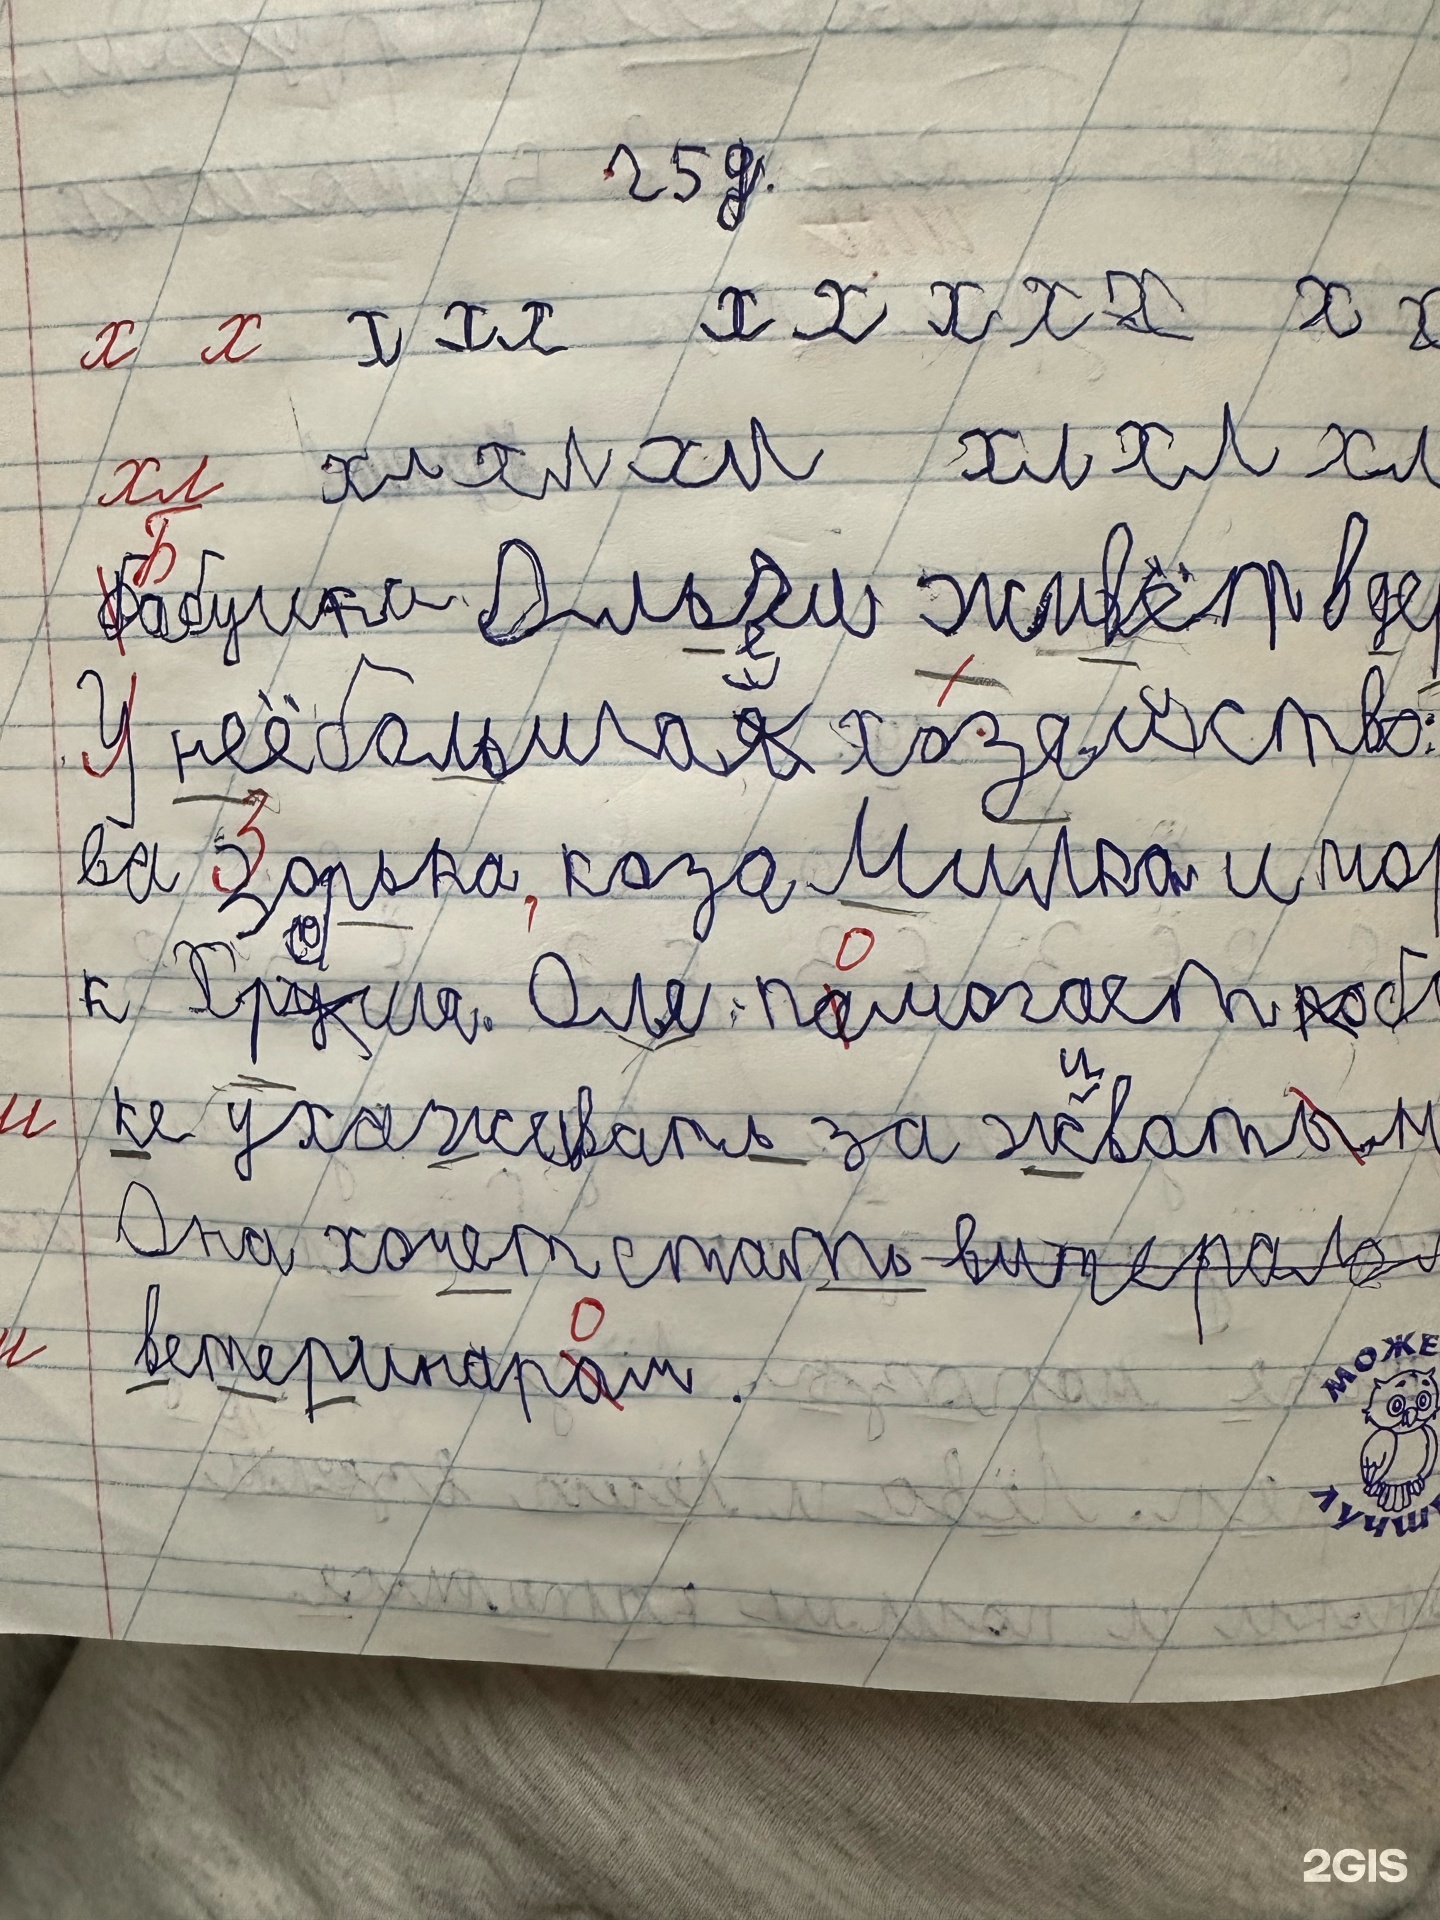 25 д.
х х х х х х х х х х х х
хл хл хл хл хл хл хл
бабушка Ольги живёт в дер
У неё большое хозяйство:
ва Зорька, коза Милка и пор
к Хрюша. Оля памогает баб
ке ухаживать за живатным
Она хочет стать
ветеринарам.
МОЖЕ
2GIS